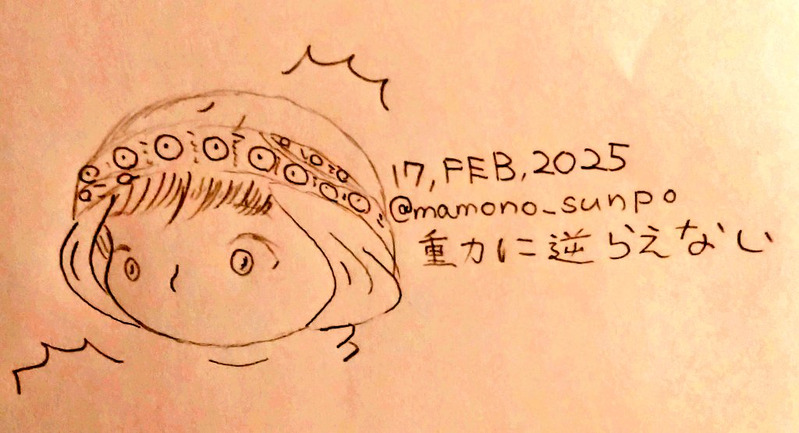 17, FEB, 2025
@mamono_sunpo
重力に逆らえない